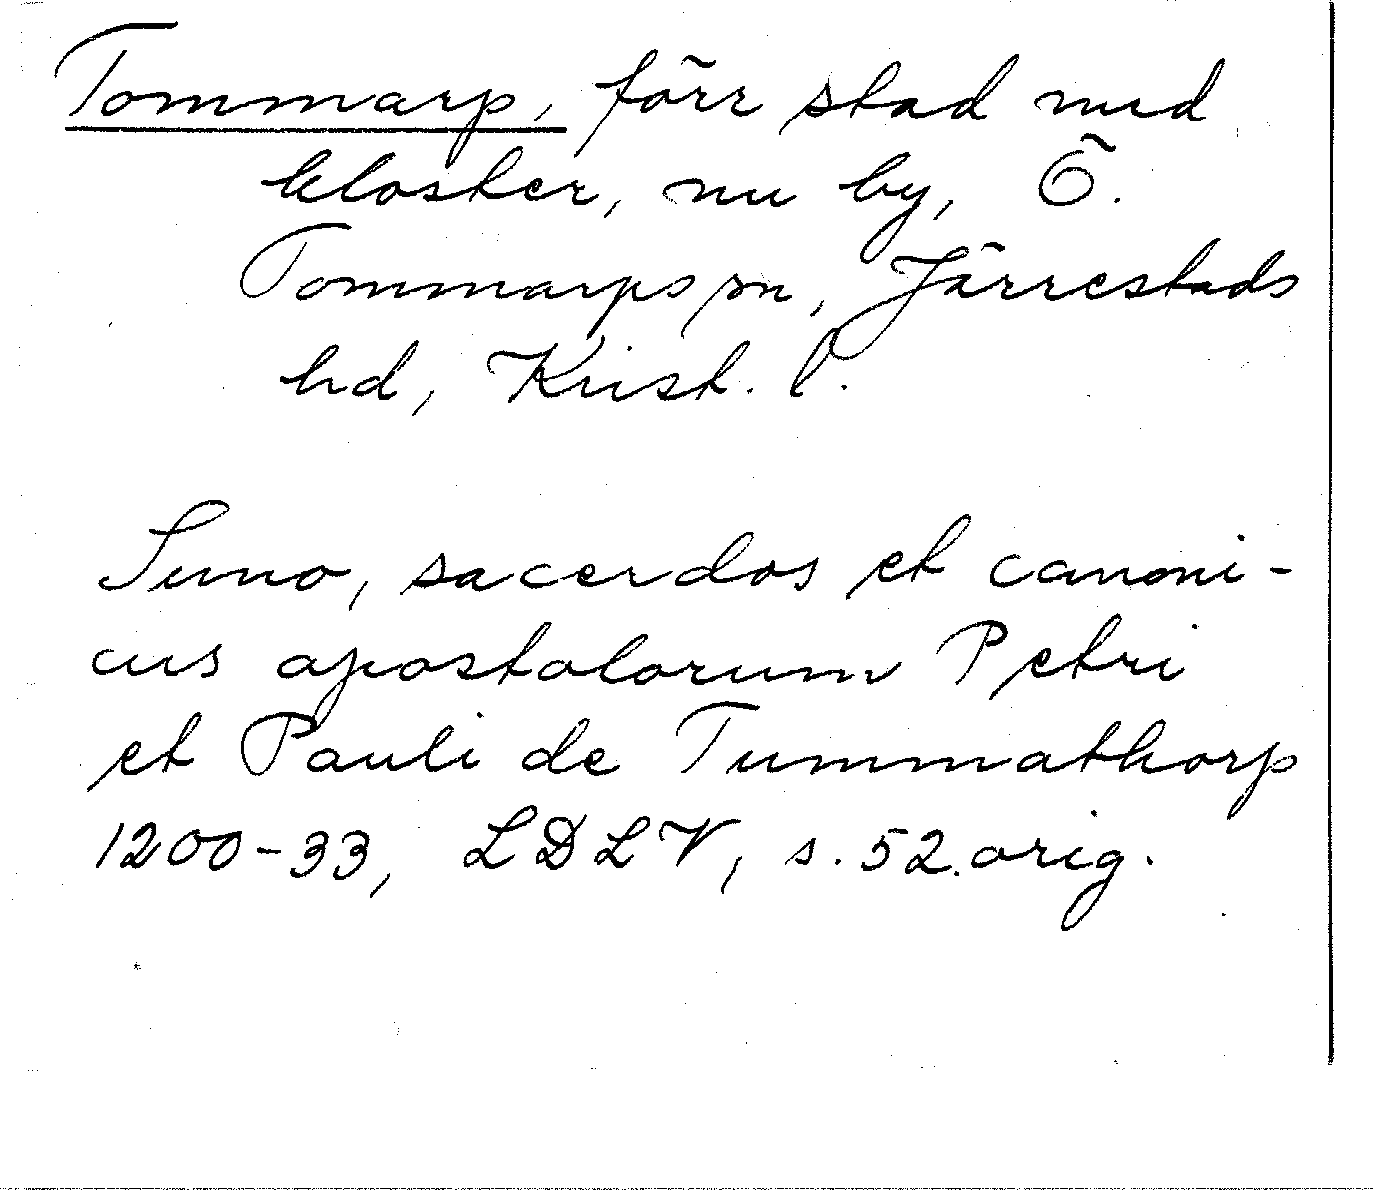 Tommarp, förr stad med
kloster, nu by, Ö.
Tommarps sn, Järrestads
hd, Krist. l.
Suno, sacerdos et canoni-
cus apostolorum Petri
et Pauli de Tummathorp
1200-33, LDLV, s. 52. orig.